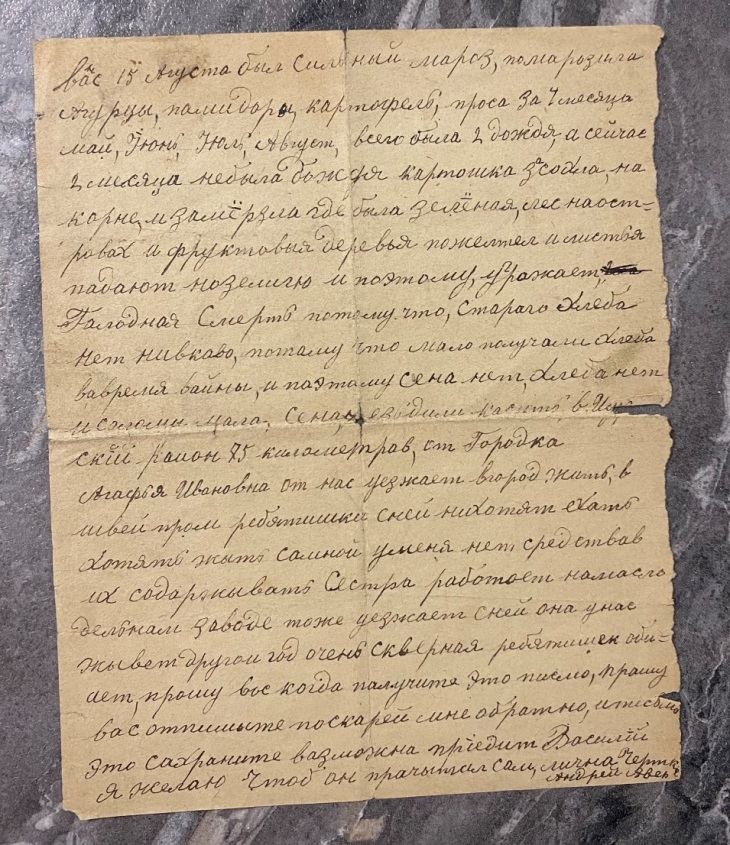 вас 15 Августа был сильный мароз, помарозила
Агурцы, памидоры, картофель, проса за 4 месяца
май, Июнь, Июль, Август, всего была 2 дождя, а сейчас
2 месяца небыла дождя картошка засохла, на
корне, и замёрзла где была зелёная, лес наост-
ровах и фруктовыя деревья пожелтел и листья
падают ноземлю и поэтому, угражает,
Галодная Смерть потому что, стараго Хлеба
нет нивкаво, потаму что мало получали хлеба
вавремя вайны, и паэтому Сена нет, Хлеба нет
и саломы мала, Сена, ездили касить, в
ский Район 75 километрав, от Городка
Агафья Ивановна от нас уезжает вгород жить, в
швей пром ребятишки сней нихотят ехать
хотять жыть самной уменя нет средствав
их содаржывать Сестра работает намасло
дельнам заводе тоже уезжает сней она унас
жывет другой год очень скверная ребятишек оби=
ает, прошу вас когда палучите это писмо, прашу
вас отпишыте поскарей мне обратно, и писмо
это сахраните вазможна приедит Василий
я желаю чтоб он прачытал сам, лична
Андрей